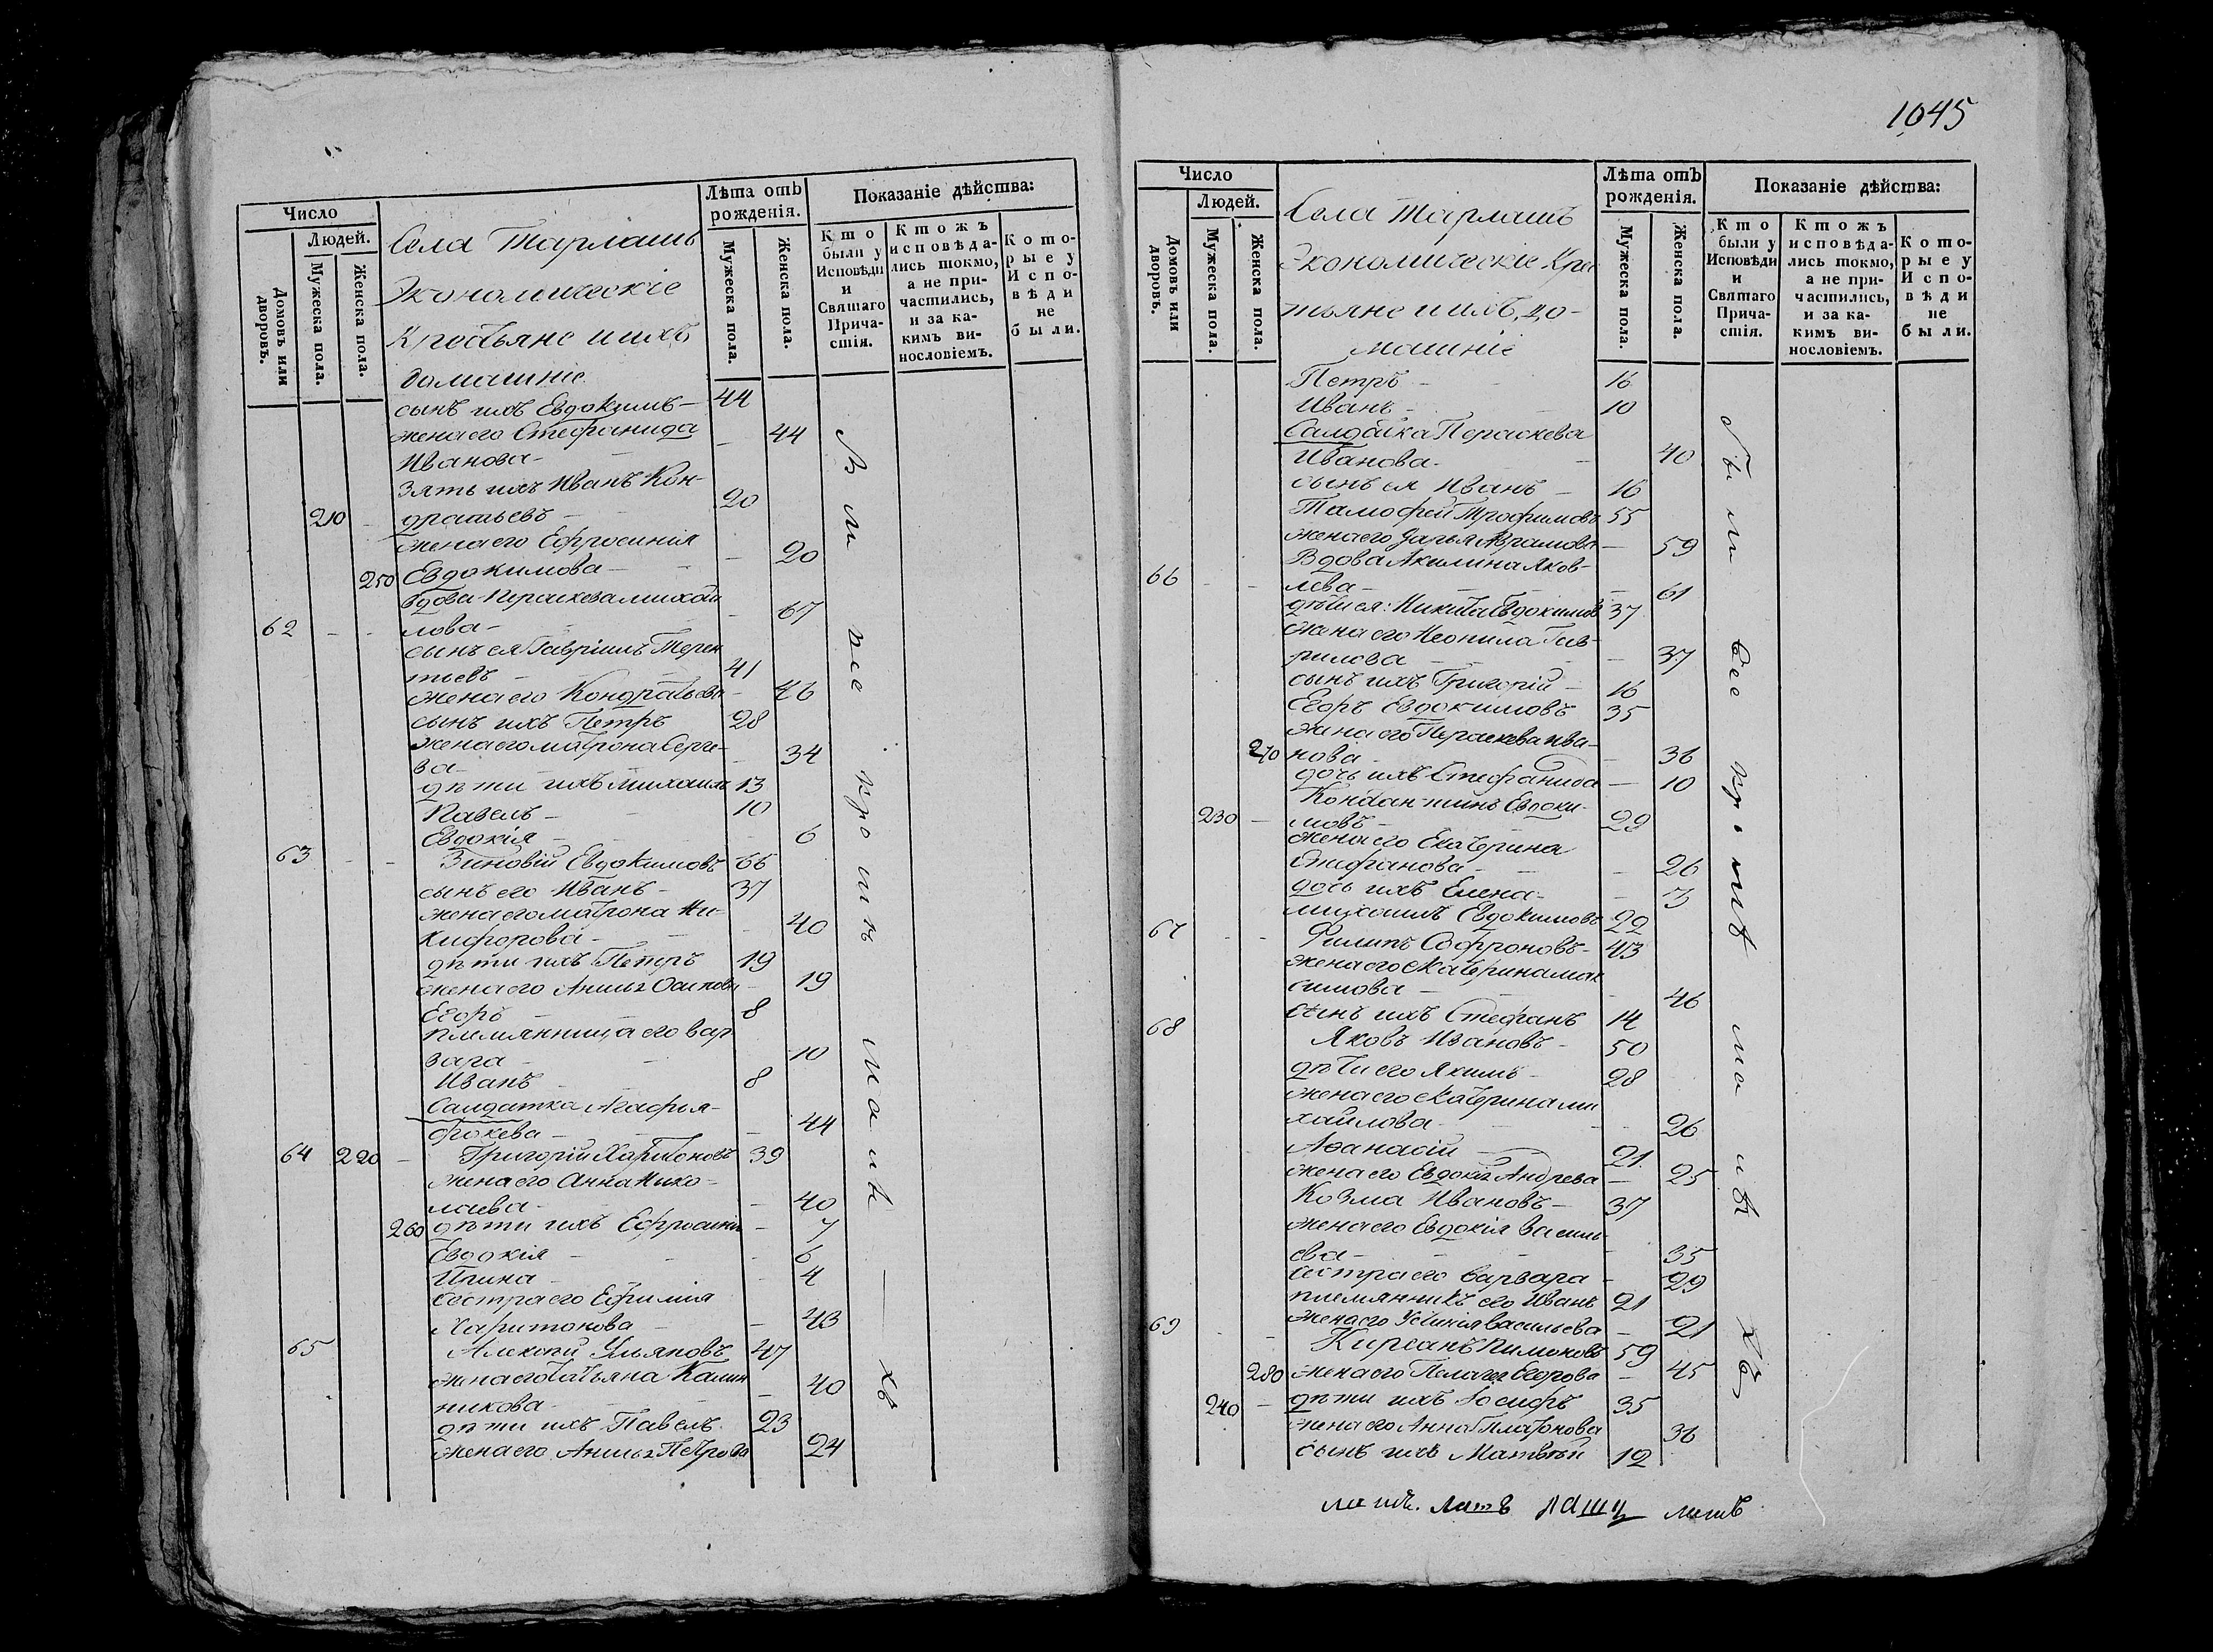 Число
Людей.
Домовъ или дворовъ.
Мужеска пола.
Женска пола.
Села Тарлашъ
Экономическіе
Крестьяне и ихъ
домашніе
Лѣта отъ рожденія.
Мужеска пола.
Женска пола.
Показаніе дѣйства:
Кто были у Исповѣди и Святаго Причастія.
Ктожъ исповѣдались токмо, а не причастились, и за какимъ винословіемъ.
Которые у Исповѣди не были.
сынъ ихъ Евдокимъ - 44
жена его Стефанида 44
Иванова -
Зять ихъ Иванъ Кон-
210 дратьевъ - 20
жена его Ефросинія
250 Евдокимова - 20
вдова Параскева Михай
62 лова - 67
сынъ ея Гавріилъ Терен
тьевъ - 41
жена его Кондратьева - 46
сынъ ихъ Петръ 28
жена его Матрона Серге-
ва - 34
дѣти ихъ Михаилъ 13
Павелъ - 10
Евдокія - 6
63 Зиновій Евдокимовъ 66
сынъ его Иванъ - 37
жена его Матрона Ни-
кифорова - 40
дѣти ихъ Петръ 19
жена его Анисья Осипова - 19
Егоръ - 8
племянница его Вар
вара - 10
Иванъ 8
Салдатка Агафья -
фокева - 44
64 220 Григорій Харитоновъ 39
жена его Анна Нико-
лаева - 40
260 дѣти ихъ Ефросинія - 7
Евдокія - 6
Ирина - 4
сестра его Ефимія
Харитонова - 43
65 Алексѣй Ульяновъ 47
жена его Татьяна Калин
никова - 40
дѣти ихъ Павелъ 23
жена его Анисья Петрова 24
1045
Число
Людей.
Домовъ или дворовъ.
Мужеска пола.
Женска пола.
Села Тарлашъ
Экономическіе Крес
тьяне и ихъ до-
машніе
Лѣта отъ рожденія.
Мужеска пола.
Женска пола.
Показаніе дѣйства:
Кто были у Исповѣди и Святаго Причастія.
Ктожъ исповѣдались токмо, а не причастились, и за какимъ винословіемъ.
Которые у Исповѣди не были.
Петръ - 16
Иванъ - 10
Салдатка Параскева
Иванова - 40
сынъ ея Иванъ - 16
Тимофей Трофимовъ 55
жена его Дарья Аврамова - 59
Вдова Акилина Яков-
66 лева - 61
дѣти ея: Никита Евдокимовъ 37
жена его Неонила Гав-
рилова - 37
сынъ ихъ Григорій - 16
Егоръ Евдокимовъ 35
жена его Параскева Ива-
270 нова - 36
дочь ихъ Стефанида - 10
Констан-тинъ Евдоки-
230 мовъ - 29
жена его Екатерина
Епифанова - 26
дочь ихъ Елена - 3
Михаилъ Евдокимовъ 22
67 Филипъ Софроновъ - 43
жена его Екатерина Мак
симова - 46
сынъ ихъ Стефанъ 14
68 Яковъ Ивановъ - 50
дѣти его Якимъ - 28
жена его Екатерина Ми
хайлова - 26
Аѳанасій 21
жена его Евдокія Андреева - 25
Козма Ивановъ - 37
жена его Евдокія Василь
ева - 35
сестра его Варвара - 29
племянникъ его Иванъ 21
жена его Устинія Васильева - 21
69 Кирсанъ Пимоновъ 59
280 жена его Пелагея Егорова - 45
240 дѣти ихъ Іосифъ 35
жена его Анна Платонова 36
сынъ ихъ Матвѣй 12